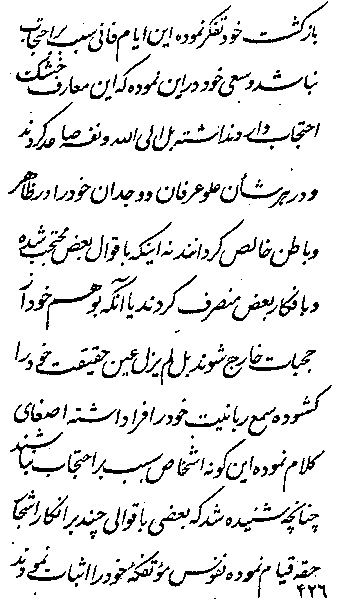 بازگشت خود تفکر نموده این ایام فانی سبب بر احتجاب
نباشد و سعی خود در این نموده که این معارف خشک
احتجاب وارد نداشته بل الی الله و نفسه صاعد کردند
و در هر شأن علو عرفان و وجدان خود را در ظاهر
و باطن خالص کردانند نه اینکه باقوال بعض محتجب شده
و بافکار بعض منصرف کردند یا آنکه بوهم خود از
حجبات خارج شوند بل لم یزل عین حقیقت خود را
کشوده سمع ربانیت خود را فراداشته اصغای
کلام نموده این کونه اشخاص سبب بر احتجاب نباشند
چنانچه شنیده شد که بعضی باقوالی چند بر انکار اشجار
حقه قیام نموده نفوس مؤتفکهٔ خود را اثبات نمودند
۴۲۶